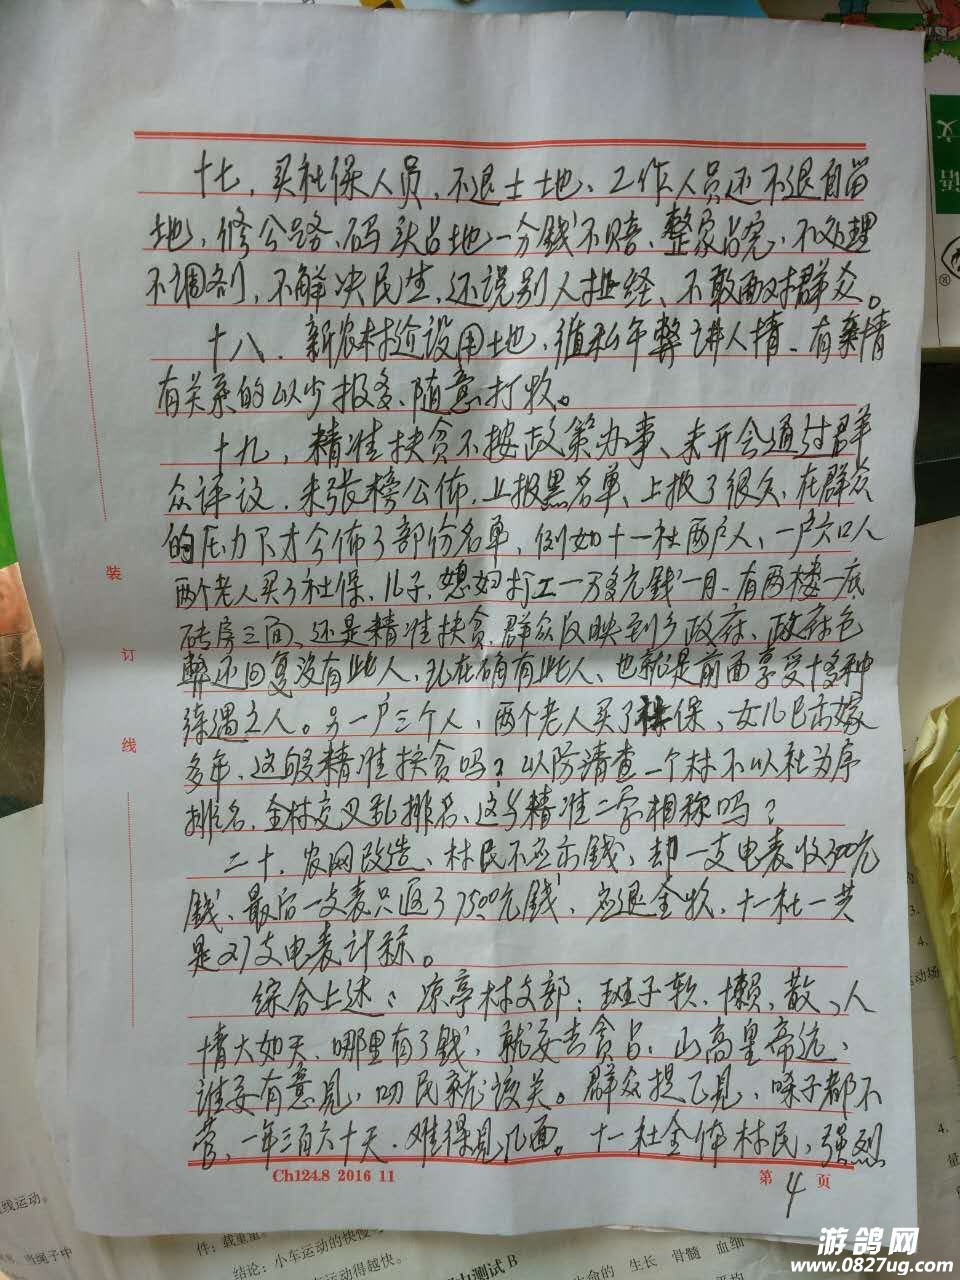 十七，买社保人员，不退土地、工作人员还不退自留
地，修公路、码头占地一分钱不赔、整家占完，不处理
不调剂，不解决民生，还说别人扯经、不敢面对群众。
十八．新农村建设用地，循私午弊讲人情、有亲情
有关系的以少报多、随意打收。
十九，精准扶贫不按政策办事、未开会通过群
众评议．未张榜公佈，上报黑名单、上报了很久，在群众
的压力下才公佈了部份名单，例如十一社两户人，一户六口人
两个老人买了社保，儿子，媳妇打工一万多元钱一月．有两楼一底
砖房三间、还是精准扶贫．群众反映到乡政府、政府包
弊还回复没有此人，现在确有此人、也就是前面享受十多种
待遇之人。另一户三个人，两个老人买了社保，女儿已出嫁
多年，这够精准扶贫吗？以防清查一个村不以社为序
排名，全村交叉乱排名、这与精准二字相称吗？
二十．农网改造、村民不应出钱，却一支电表收300元
钱，最后一支表只返了75.00元钱，应退全收，十一社一共
是27支电表计称。
综合上述：凉亭村支部：班子软、懒、散、人
情大如天、哪里有了钱，就要去贪占，山高皇帝远、
谁要有意见，叨民就该关。群众提乙见，嗓子都不
管，一年三百六十天．难得见几面。十一社全体村民，强烈
装
订
线
Ch124.8 2016 11
第 4 页
语
文
®
3.
4.
运动场
4.
量
直线运动。
当绳子中
件：载重量。
小车运动的快慢
结论：小车运动得越快。
力测试B
生命的
生长 骨髓 血细
游鸽网
www.0827ug.com